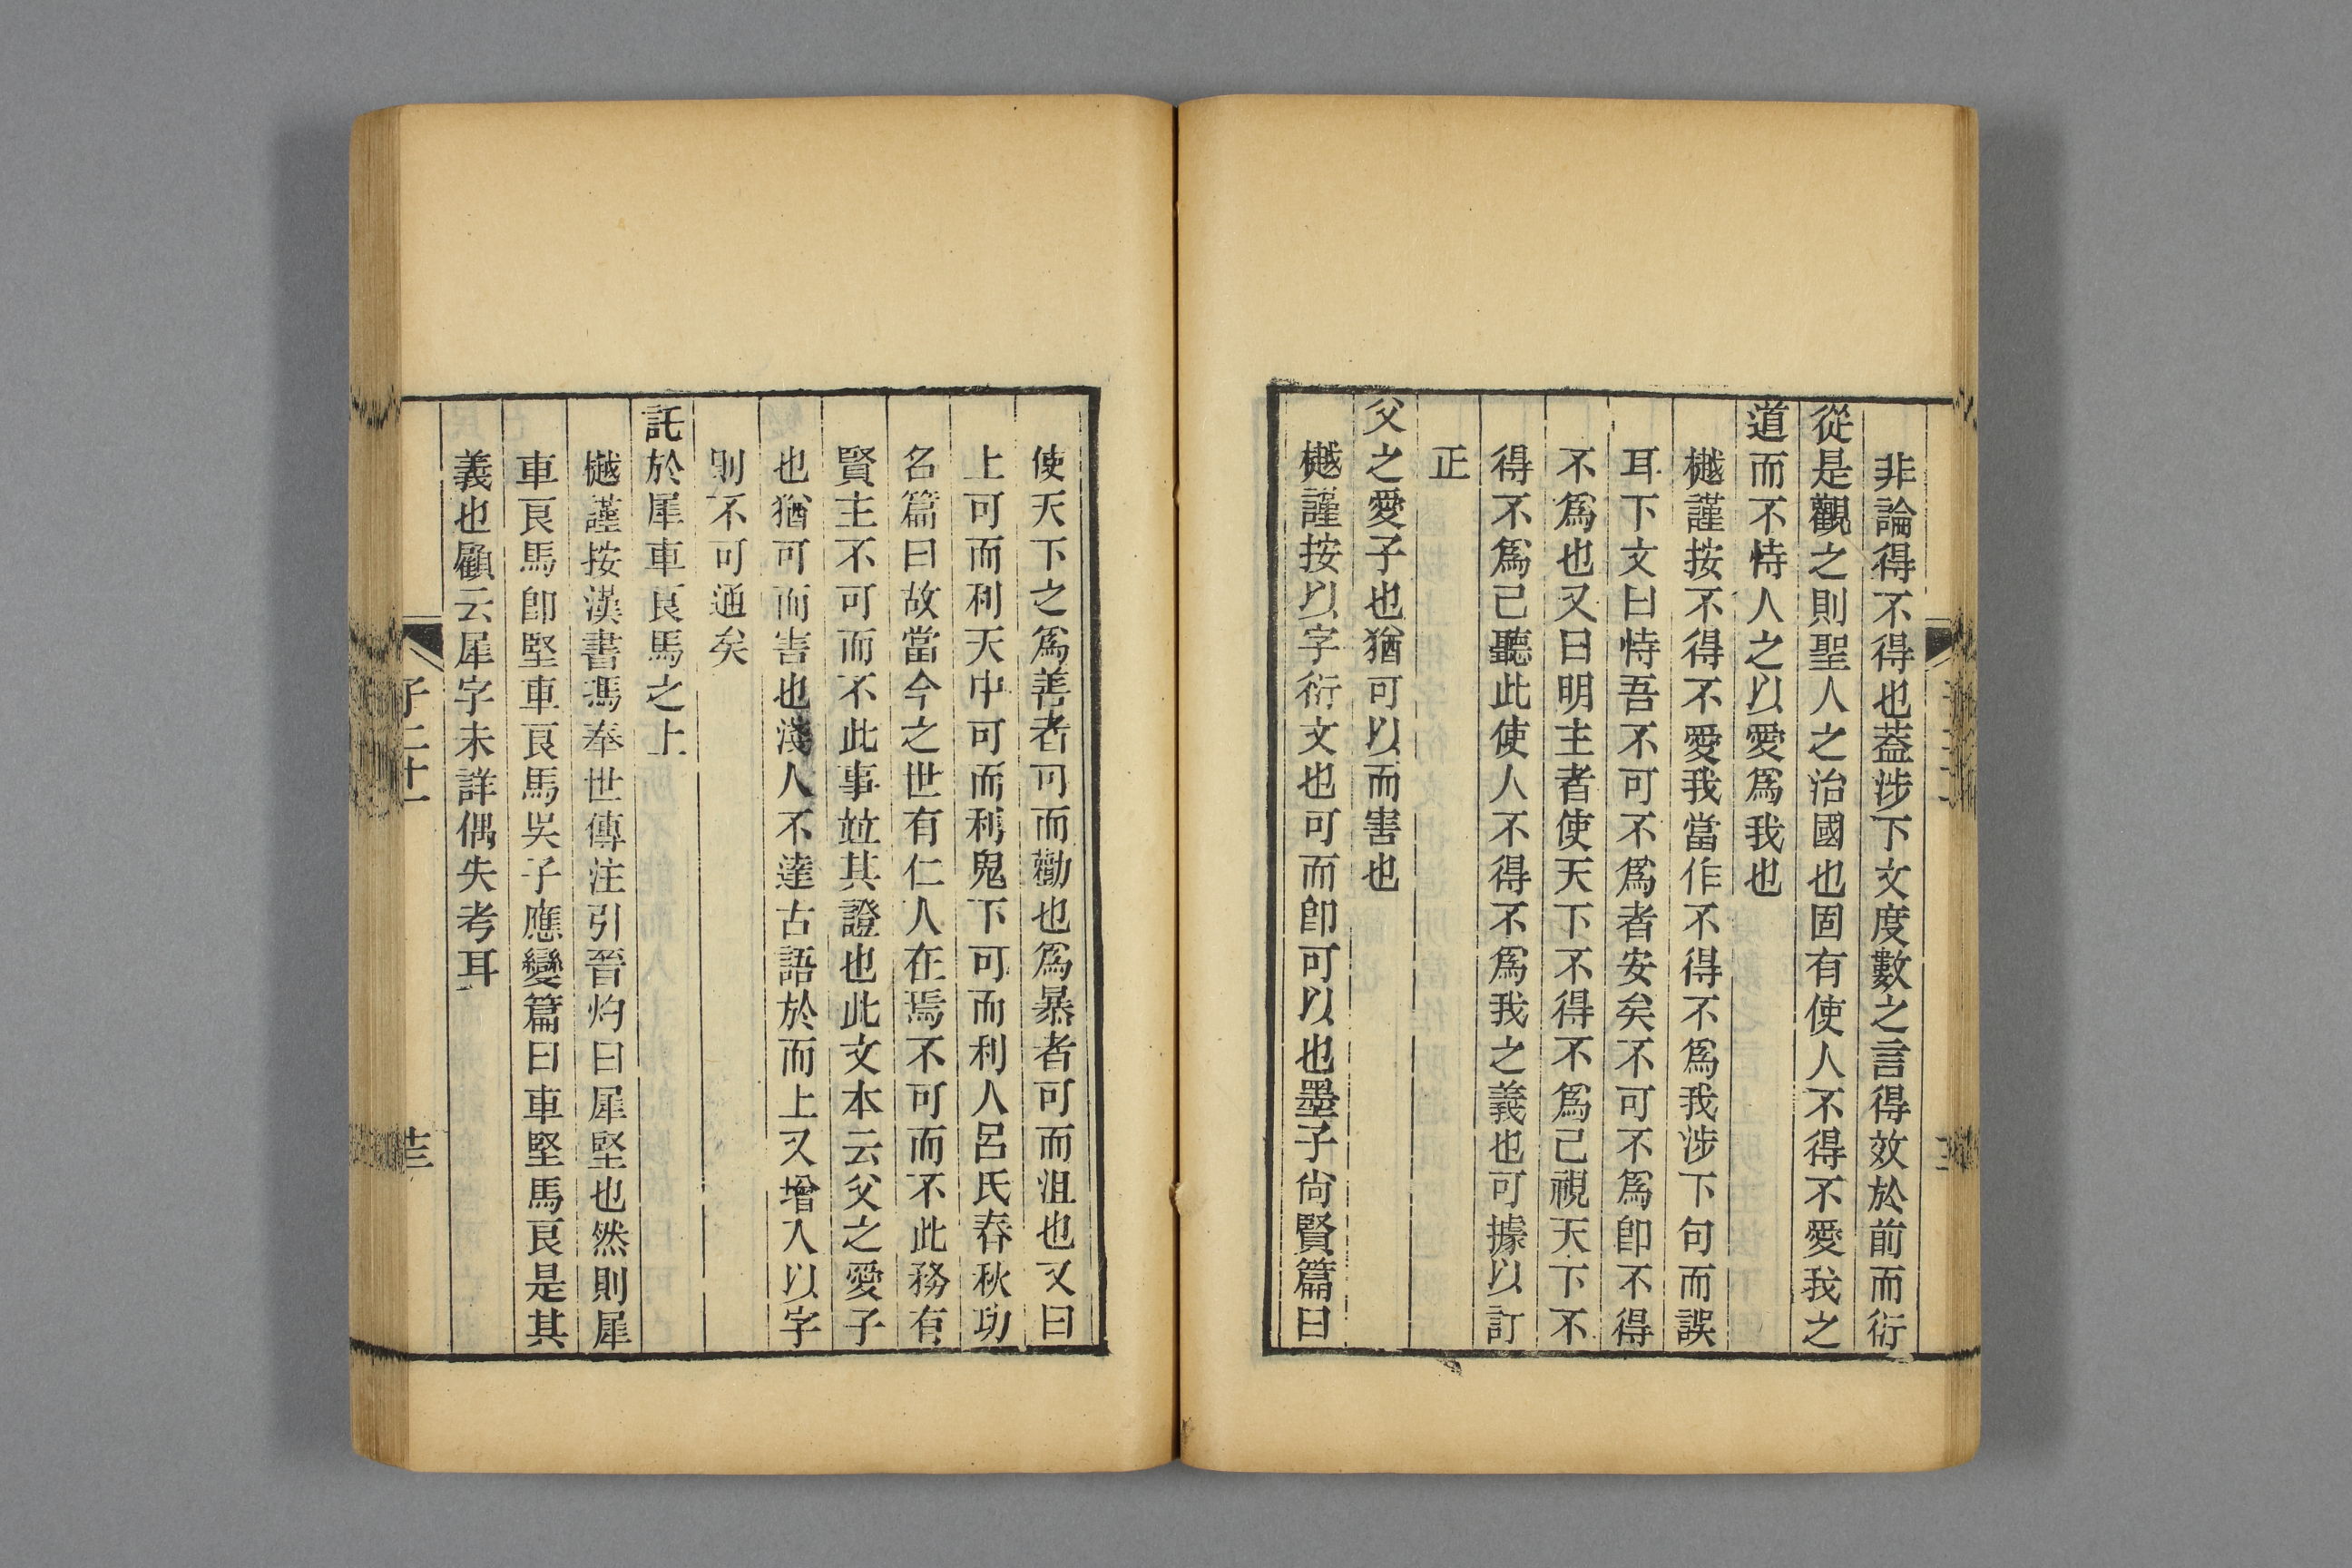 非論得不得也蓋涉下文度數之言得效於前而衍
從是觀之則聖人之治國也固有使人不得不愛我之
道而不恃人之以愛爲我也
樾謹按不得不愛我當作不得不爲我涉下句而誤
耳下文曰恃吾不可不爲者安矣不可不爲卽不得
不爲也又曰明主者使天下不得不爲己視天下不
得不爲己聽此使人不得不爲我之義也可據以訂
正
父之愛子也猶可以而害也
樾謹按以字衍文也可而卽可以也墨子尙賢篇曰
使天下之爲善者可而勸也爲暴者可而沮也又曰
上可而利天中可而利鬼下可而利人呂氏春秋功
名篇曰故當今之世有仁人在焉不可而不此務有
賢主不可而不此事竝其證也此文本云父之愛子
也猶可而害也淺人不達古語於而上又增入以字
則不可通矣
託於犀車良馬之上
樾謹按漢書馮奉世傳注引晉灼曰犀堅也然則犀
車良馬卽堅車良馬吳子應變篇曰車堅馬良是其
義也顧云犀字未詳偶失考耳
子二十一